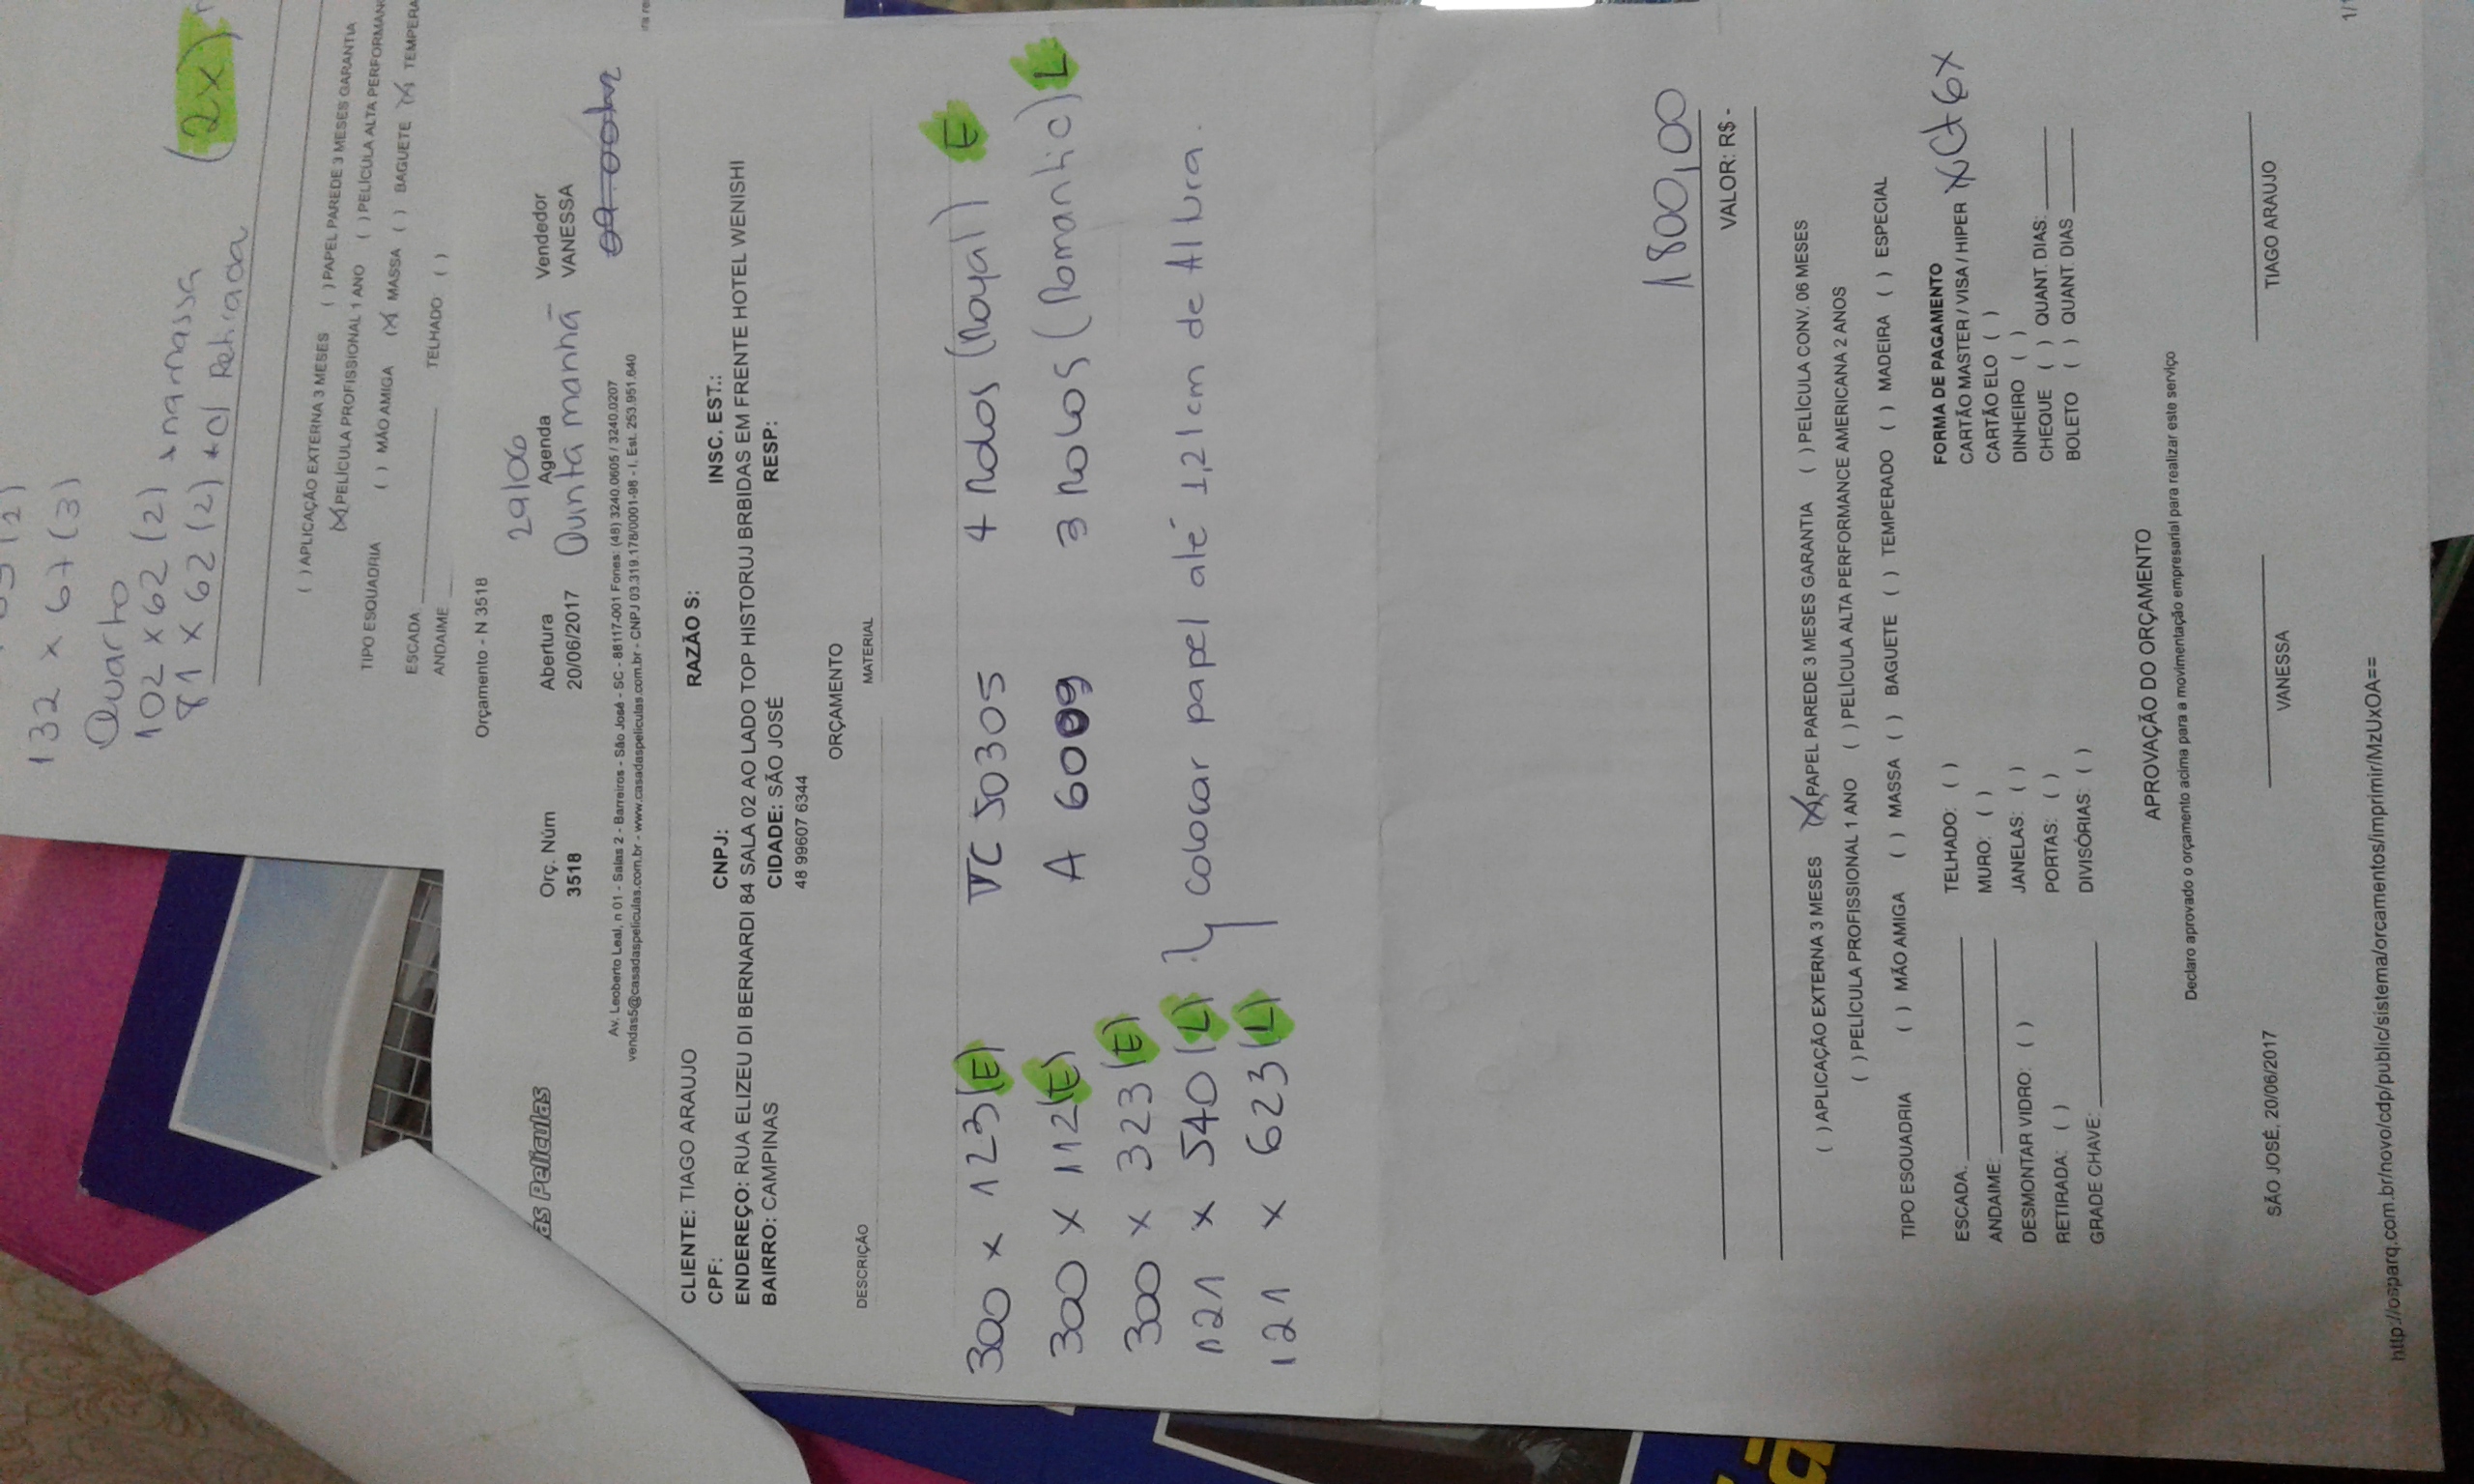 132 x 67 (3)
Quarto
102 x 62 (2) * na massa
81 x 62 (2) * c/ Retirada
(2x)
( ) APLICAÇÃO EXTERNA 3 MESES ( ) PAPEL PAREDE 3 MESES GARANTIA
(X) PELÍCULA PROFISSIONAL 1 ANO ( ) PELÍCULA ALTA PERFORMANC
TIPO ESQUADRIA ( ) MÃO AMIGA (X) MASSA ( ) BAGUETE (X) TEMPERA
ESCADA TELHADO: ( )
ANDAIME
Orçamento - N 3518
29/06
Orç. Núm Abertura Agenda Vendedor
3518 20/06/2017 Quinta manhã VANESSA
as Películas
Av. Leoberto Leal, n 01 - Salas 2 - Barreiros - São José - SC - 88117-001 Fones: (48) 3240.0605 / 3240.0207
vendas5@casadaspeliculas.com.br - www.casadaspeliculas.com.br - CNPJ 03.319.178/0001-98 - I. Est. 253.951.640
CLIENTE: TIAGO ARAUJO RAZÃO S:
CPF: CNPJ: INSC. EST.:
ENDEREÇO: RUA ELIZEU DI BERNARDI 84 SALA 02 AO LADO TOP HISTORUJ BRBIDAS EM FRENTE HOTEL WENISHI
BAIRRO: CAMPINAS CIDADE: SÃO JOSÉ RESP:
48 99607 6344
ORÇAMENTO
DESCRIÇÃO MATERIAL
300 x 123 (E) VC 50305 4 Rolos (Royal) E
300 x 112 (E) A 6009 3 Rolos (Romantic) L
300 x 323 (E)
121 x 540 (L) } colocar papel até 1,21 cm de Altura.
121 x 623 (L)
1800,00
VALOR: R$ -
( ) APLICAÇÃO EXTERNA 3 MESES (X) PAPEL PAREDE 3 MESES GARANTIA ( ) PELÍCULA CONV. 06 MESES
( ) PELÍCULA PROFISSIONAL 1 ANO ( ) PELÍCULA ALTA PERFORMANCE AMERICANA 2 ANOS
TIPO ESQUADRIA ( ) MÃO AMIGA ( ) MASSA ( ) BAGUETE ( ) TEMPERADO ( ) MADEIRA ( ) ESPECIAL
FORMA DE PAGAMENTO
ESCADA: TELHADO: ( ) CARTÃO MASTER / VISA / HIPER X Ct 6x
ANDAIME: MURO: ( ) CARTÃO ELO ( )
DESMONTAR VIDRO: ( ) JANELAS: ( ) DINHEIRO ( )
RETIRADA: ( ) PORTAS: ( ) CHEQUE ( ) QUANT. DIAS:
GRADE CHAVE: DIVISÓRIAS: ( ) BOLETO ( ) QUANT. DIAS
APROVAÇÃO DO ORÇAMENTO
Declaro aprovado o orçamento acima para a movimentação empresarial para realizar este serviço
SÃO JOSÉ, 20/06/2017 VANESSA TIAGO ARAUJO
http://osparq.com.br/novo/cdp/public/sistema/orcamentos/imprimir/MzUxOA==